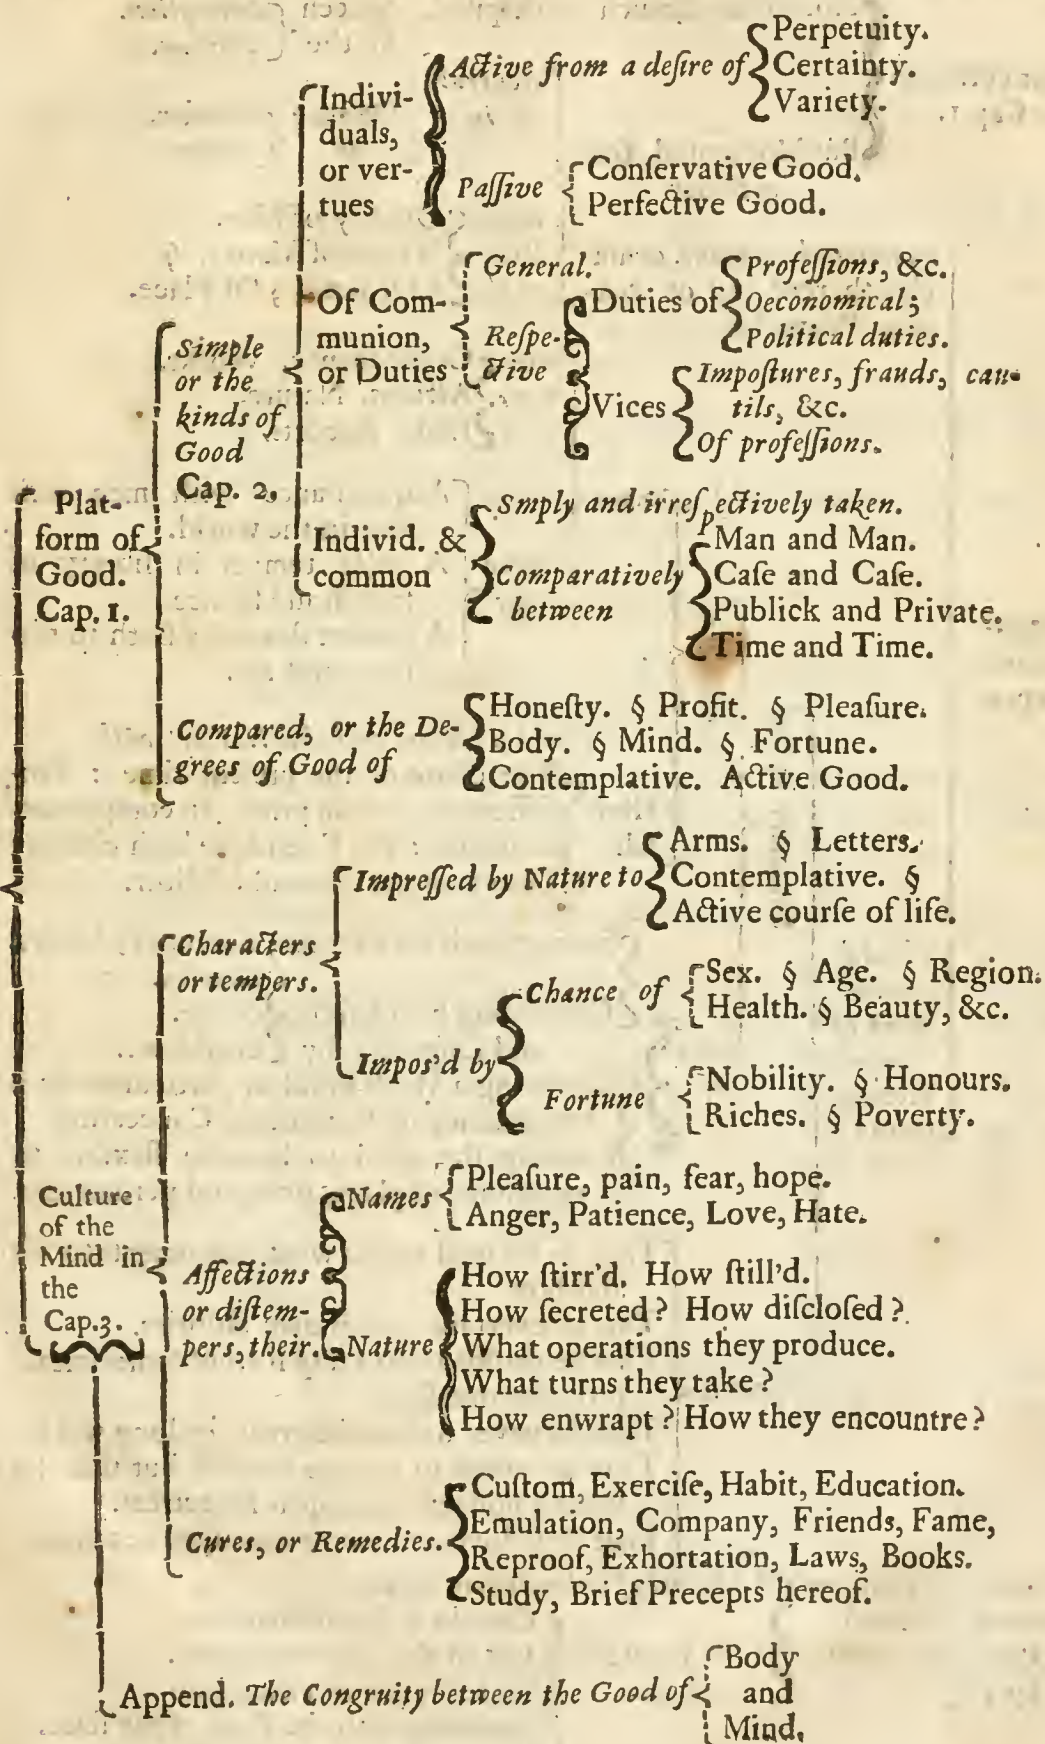 Active from a desire of
Perpetuity.
Certainty.
Variety.
Indivi-
duals,
or ver-
tues
Paſſive
Conſervative Good.
Perfective Good.
Of Com-
munion,
or Duties
General.
Reſpe-
ctive
Duties of
Profeſſions, &c.
Oeconomical;
Political duties.
Vices
Impoſtures, frauds, cau-
tils, &c.
Of profeſſions.
Simple
or the
kinds of
Good
Cap. 2,
Plat-
form of
Good.
Cap. 1.
Individ. &
common
Smply and irreſpectively taken.
Comparatively
between
Man and Man.
Caſe and Caſe.
Publick and Private.
Time and Time.
Compared, or the De-
grees of Good of
Honeſty. § Profit. § Pleaſure.
Body. § Mind. § Fortune.
Contemplative. Active Good.
Characters
or tempers.
Impreſſed by Nature to
Arms. § Letters.
Contemplative. §
Active courſe of life.
Impos'd by
Chance of
Sex. § Age. § Region.
Health. § Beauty, &c.
Fortune
Nobility. § Honours.
Riches. § Poverty.
Culture
of the
Mind in
the
Cap.3.
Affections
or diſtem-
pers, their.
Names
Pleaſure, pain, fear, hope.
Anger, Patience, Love, Hate.
Nature
How ſtirr'd. How ſtill'd.
How ſecreted? How diſcloſed?
What operations they produce.
What turns they take?
How enwrapt? How they encountre?
Cures, or Remedies.
Cuſtom, Exerciſe, Habit, Education.
Emulation, Company, Friends, Fame,
Reproof, Exhortation, Laws, Books.
Study, Brief Precepts hereof.
Append. The Congruity between the Good of
Body
and
Mind.